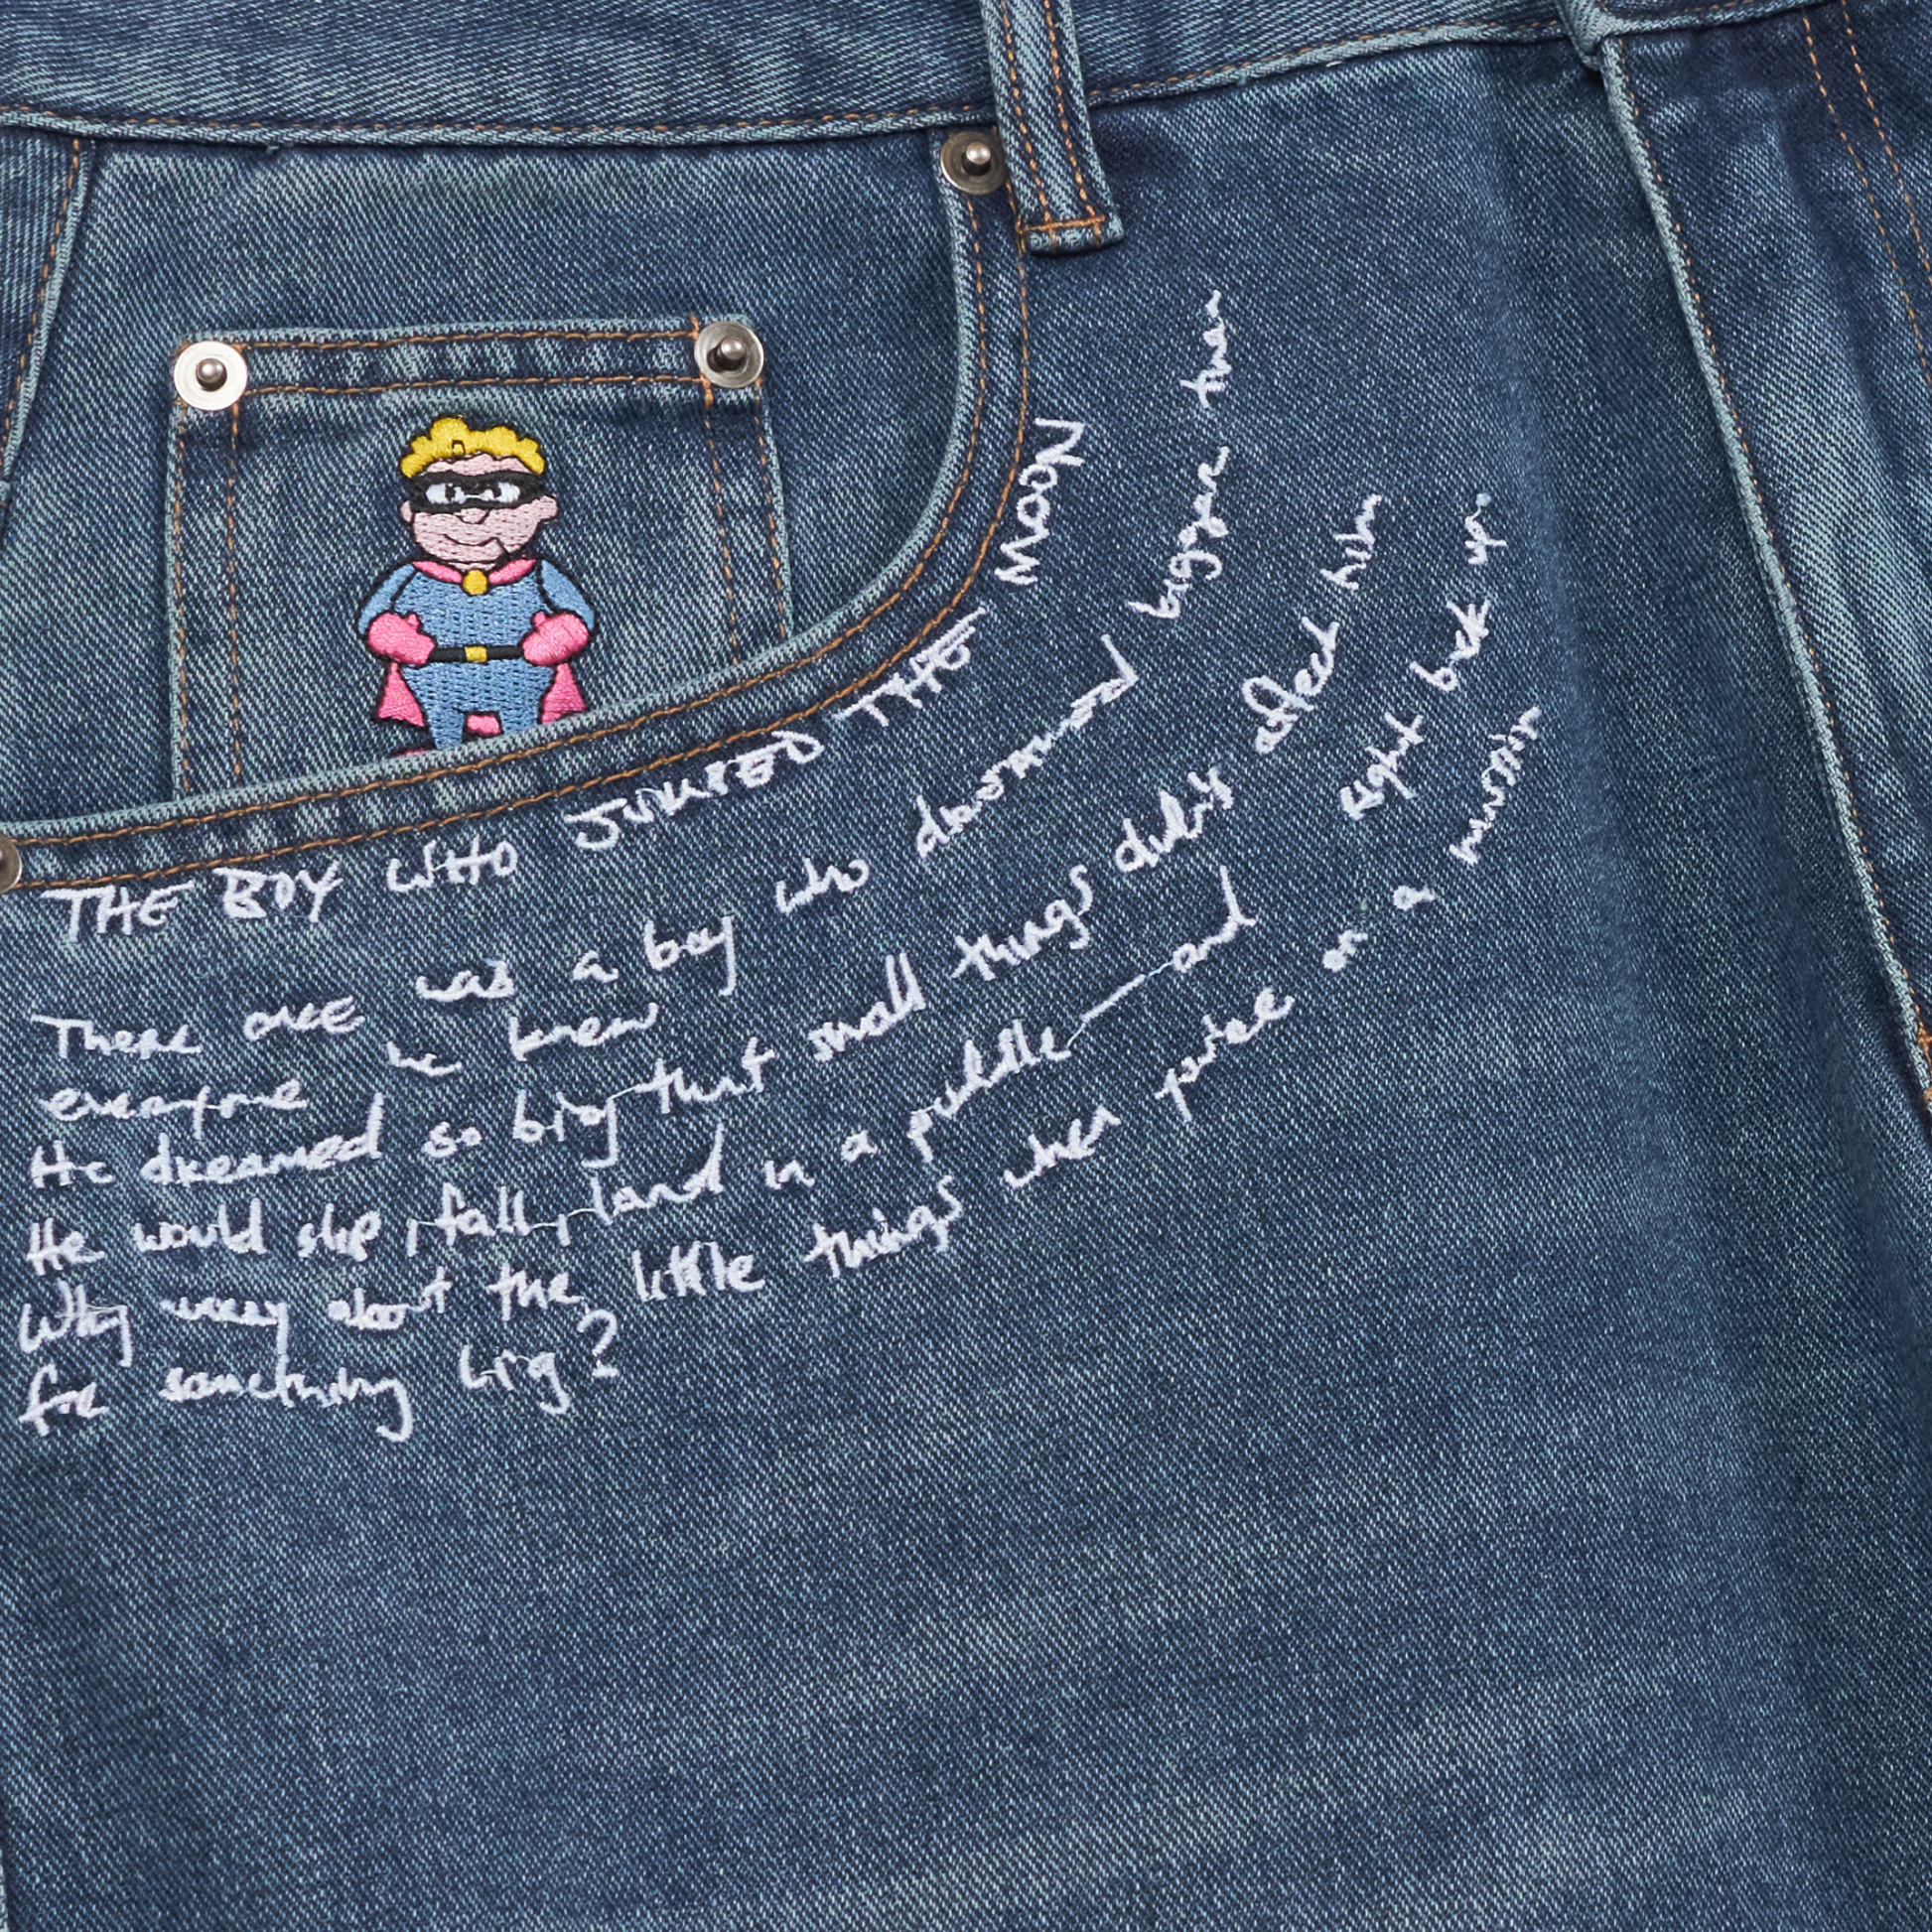 THE BOY WHO JUMPED THE MOON
There once was a boy who downward bigger than
everyone he knew
He dreamed so big that small things didn't affect him
He would slip, fall, land in a puddle — and right back up.
Why worry about the little things when you're on a mission
for something big?